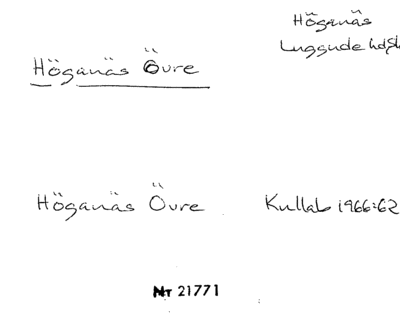 Höganäs
Luggude hd, Sk
Höganäs Övre
Höganäs Övre Kullab 1966:62
NT 21771